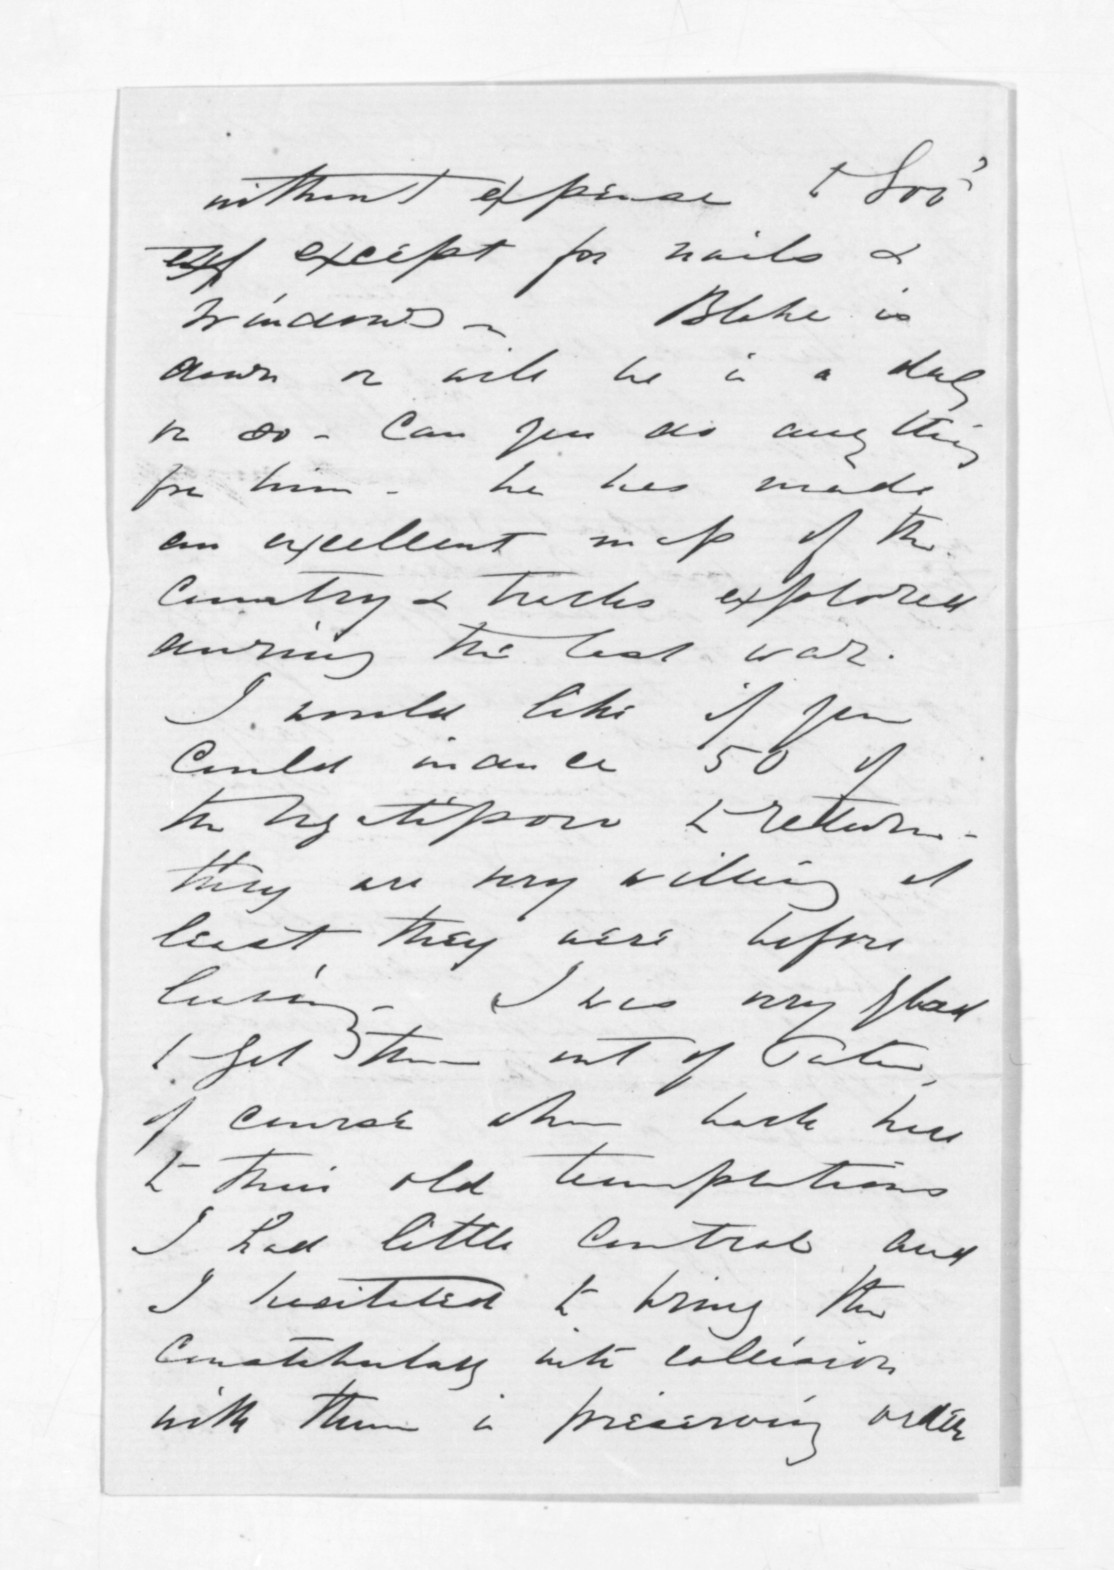 without expense to Gov't
exp except for nails &
windows - Blake is
down or will be in a day
or so - Can you do anything
for him - he has made
an excellent map of the
Country & tracks explored
during the last war.
I would like if you
could induce 50 of
the Ngatiporou to return -
they are very willing at
least they were before
leaving - I was very glad
to get them out of Patea,
of course when back here
to their old temptations
I had little control and
I hesitated to bring the
Constabulary into collision
with them in preserving order